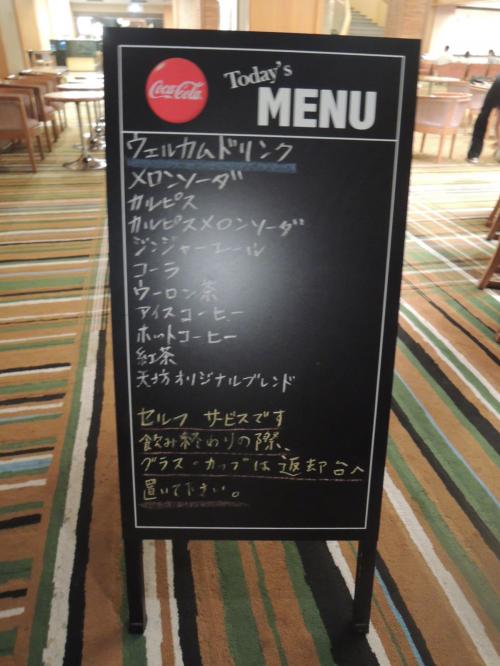 Coca-Cola
Today's
MENU
ウェルカムドリンク
メロンソーダ
カルピス
カルピスメロンソーダ
ジンジャーエール
コーラ
ウーロン茶
アイスコーヒー
ホットコーヒー
紅茶
天坊オリジナルブレンド
セルフ サービスです
飲み終わりの際、
グラス・カップは返却台へ
置いて下さい。